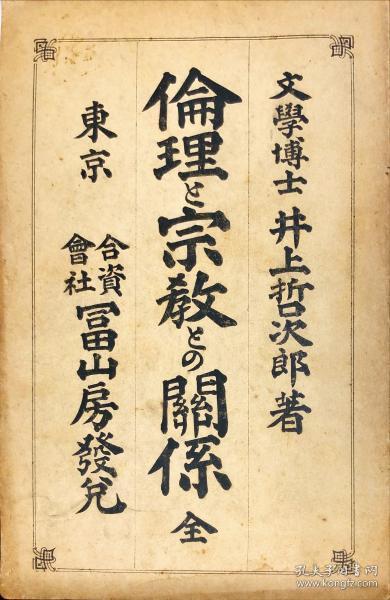 文學博士 井上哲次郎著
倫理と宗教との關係 全
東京 合資會社 冨山房發兌
孔夫子旧书网
www.kongfz.com